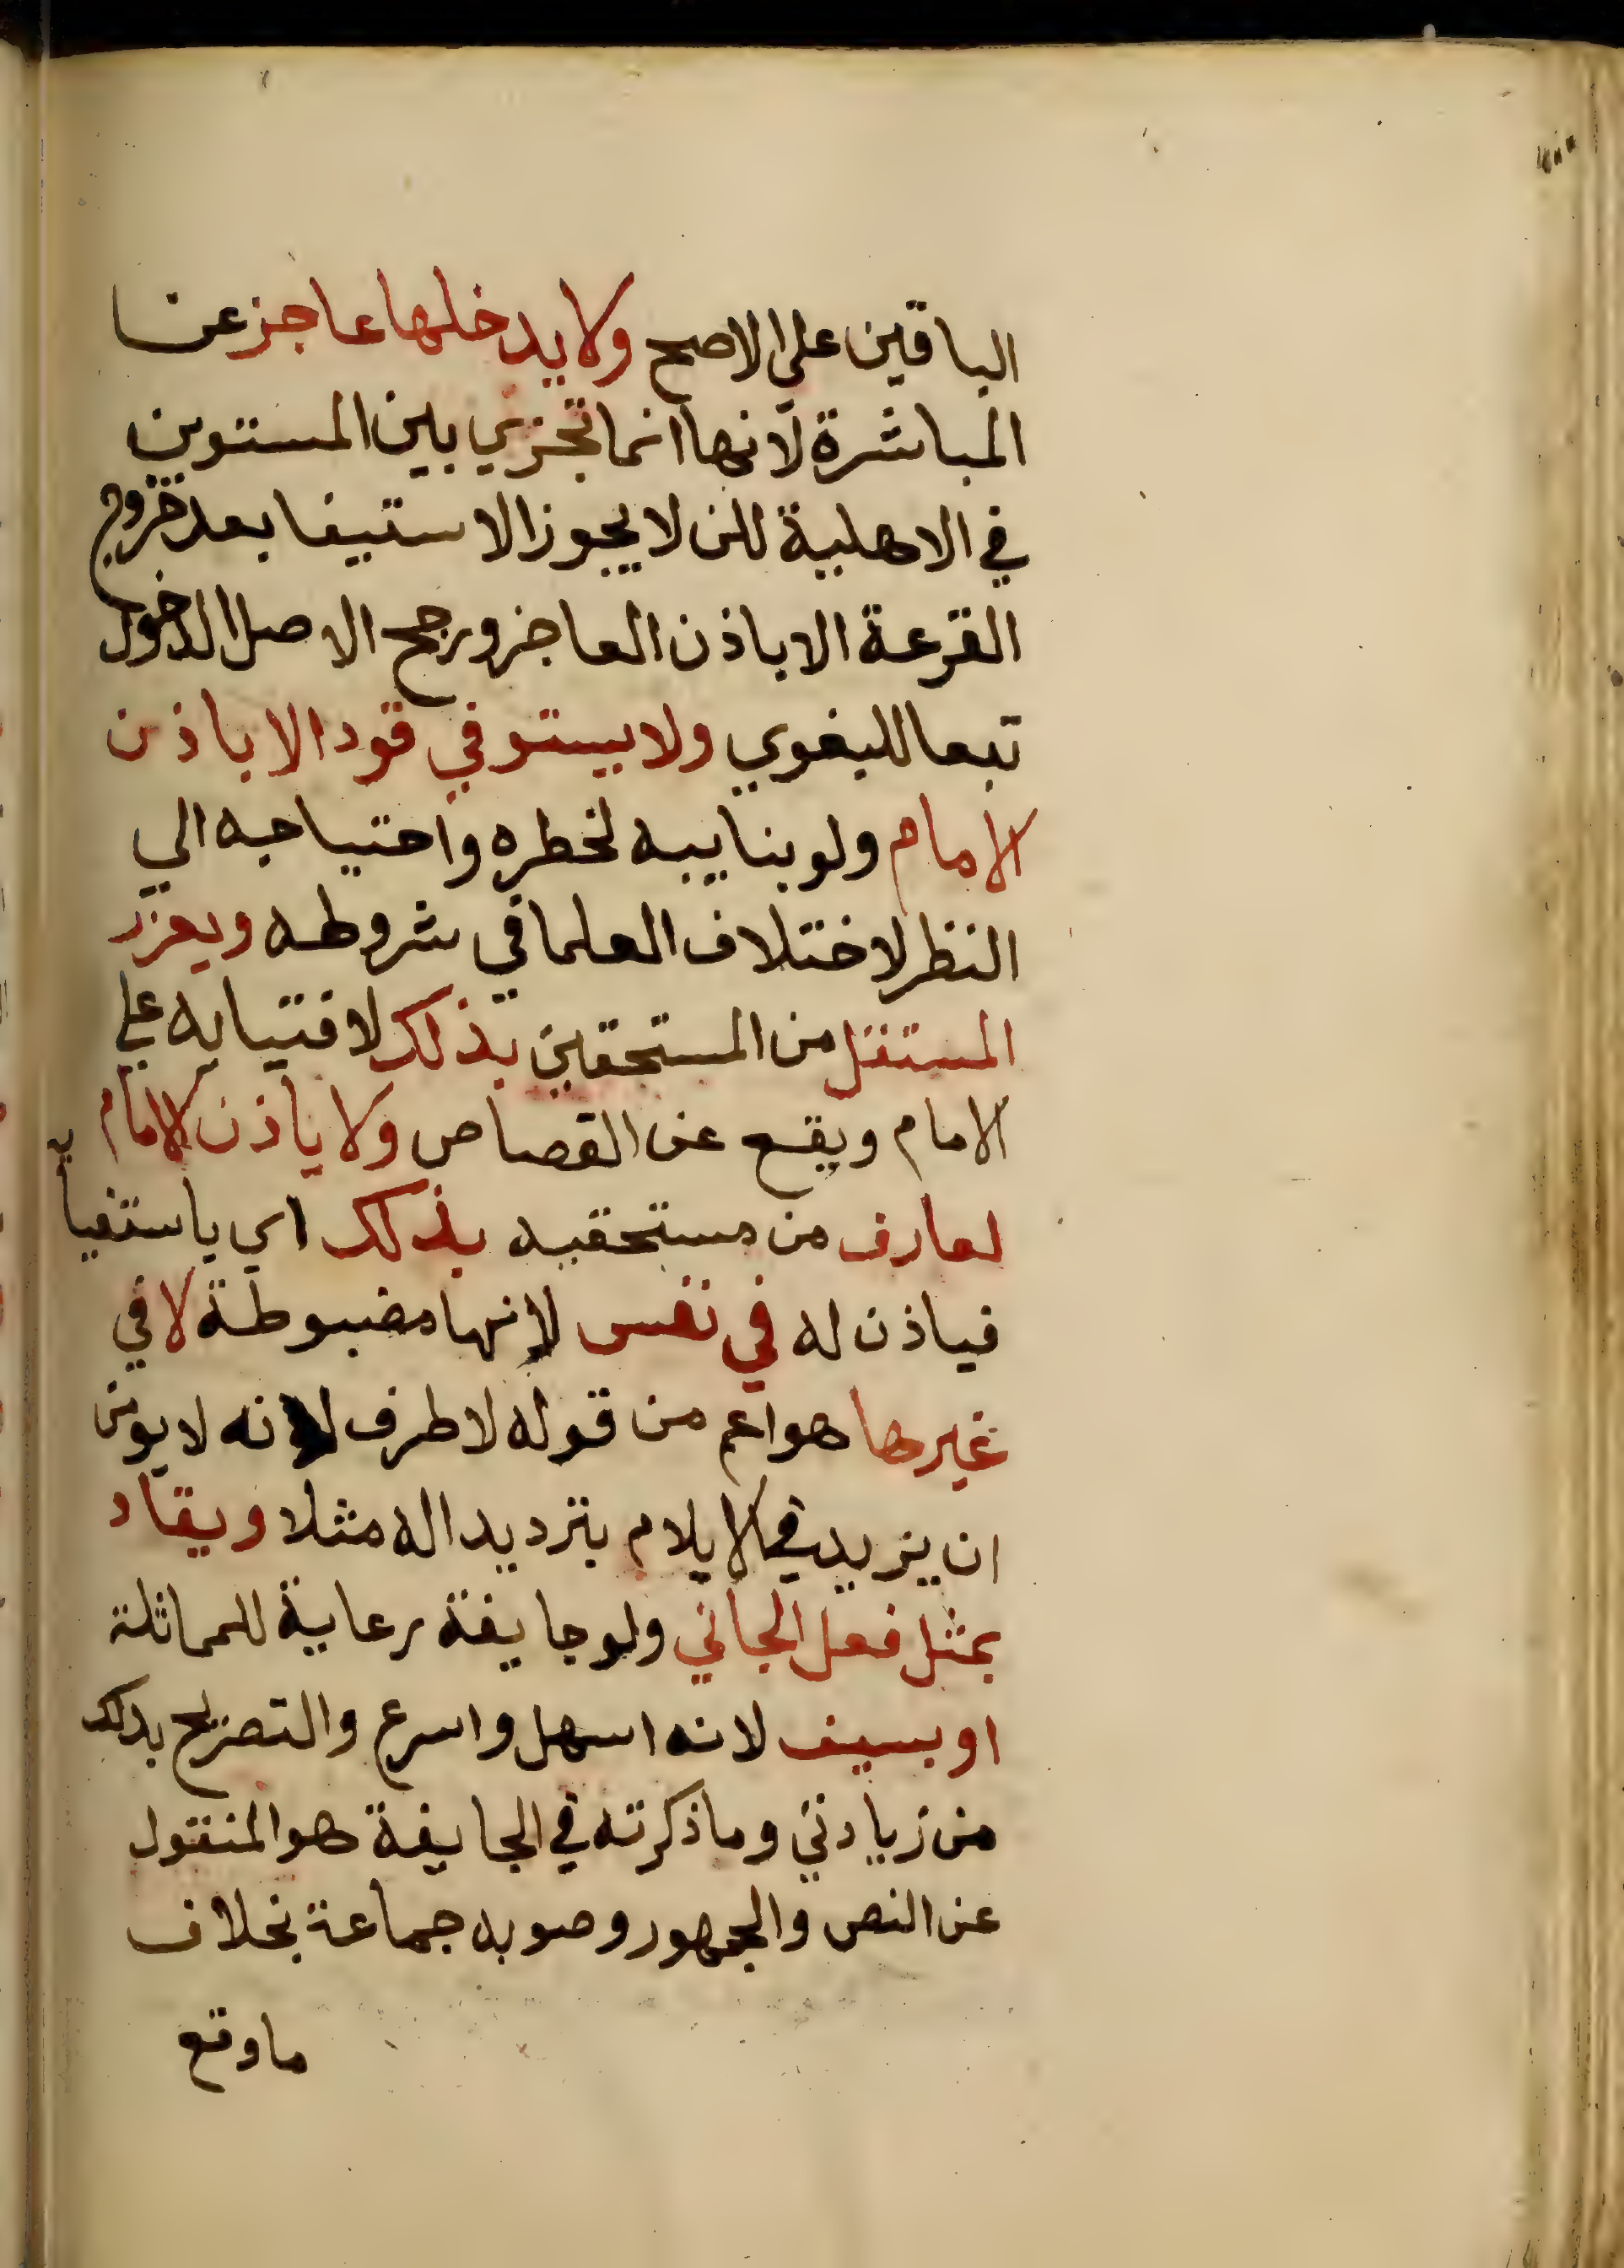 الباقين علي الاصح ولا يدخلها عاجز عن
المباشرة لانها انما تجزي بين المستوين
في الاهلية للن لا يجوز الاستيفا بعد خروج
القرعة الا باذن العاجز ورجح الاصل الدخول
تبعا للبغوي ولا يستوفي قود الا باذن
الامام ولو بنايبه لخطره واحتياجه الي
النظر لاختلاف العلما في شروطه ويعزر
المستقل من المستحقين بذلك لافتيايه علي
الامام ويقع عن القصاص ولا ياذن الامام
لعارف من مستحقيه بذلك اي باستيفايه
فياذن له في نفس لانها مضبوطة لا في
غيرها هو اعم من قوله لا طرف لانه لا يومن
ان يزيد في الايلام بترديد اله مثلا ويقاد
بمثل فعل الجاني ولو جايفة رعاية للمماثلة
او بسيف لانه اسهل واسرع والتصريح بدلك
من زيادتي وما ذكرته في الجايفة هو المنقول
عن النص والجمهور وصوبه جماعة بخلاف
ما وقع